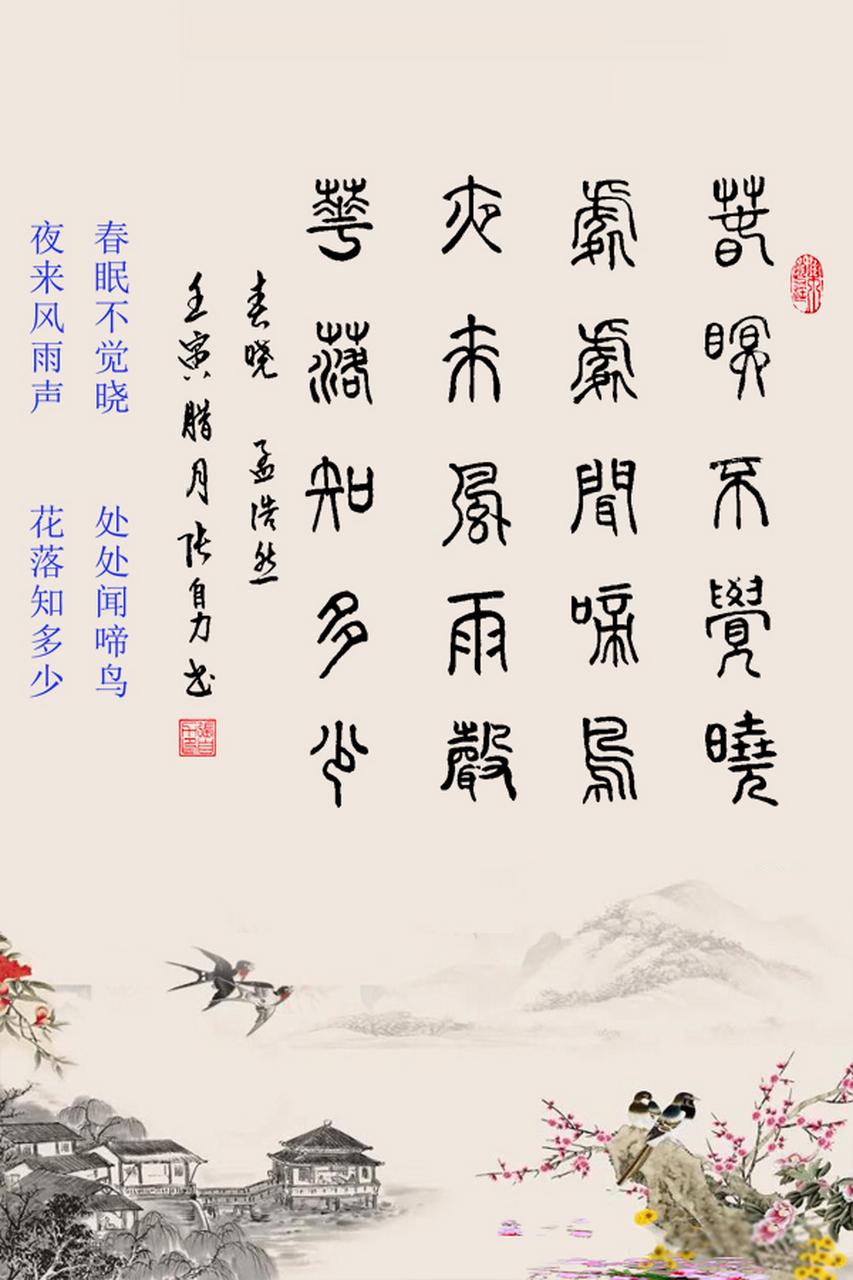 春眠不覺曉
處處聞啼鳥
夜来風雨聲
華落知多少
春晓 孟浩然
壬寅腊月张自力书
春眠不觉晓 处处闻啼鸟
夜来风雨声 花落知多少